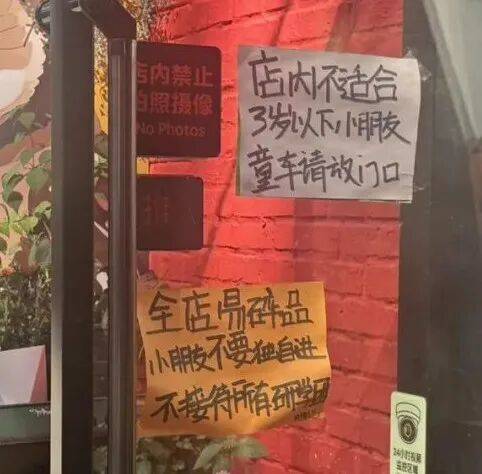 店内禁止
拍照摄像
No Photos
店内不适合
3岁以下小朋友
童车请放门口
全店易碎品
小朋友不要独自进
不接待所有研学团
24小时视频
监控区域